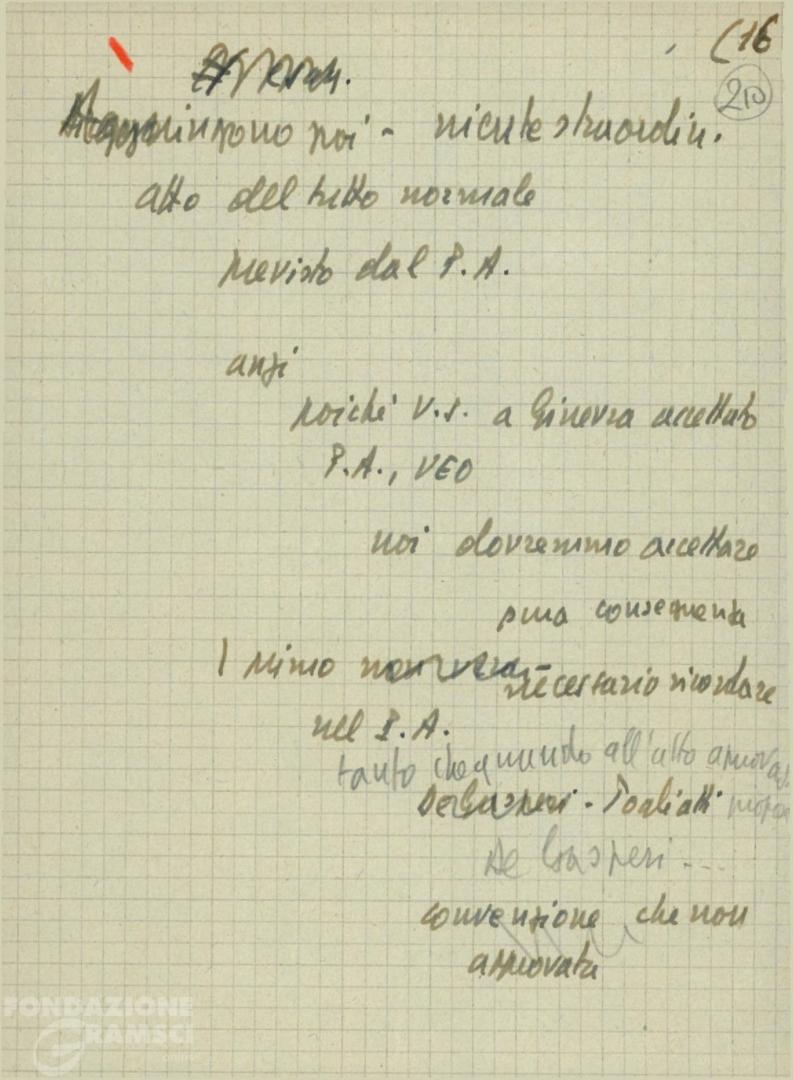 (16
210
Aggiungono poi - niente straordin.
atto del tutto normale
previsto dal P.A.
anzi
poiché V.S. a Ginevra accettato
P.A., VEO
noi dovremmo accettare
pura conseguenza
I primo non
necessario ricordare
nel P.A.
tanto che quando all'atto approvaz.
De Gasperi - Togliatti propo
De Gasperi - ...
convenzione che non
approvata
FONDAZIONE
GRAMSCI